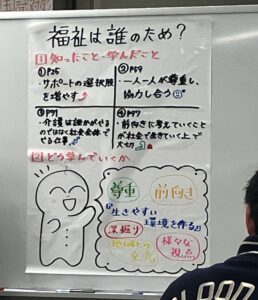 福祉は誰のため？
1 知ったこと・学んだこと
①P25
・サポートの選択肢
を増やす
②P59
・一人一人が尊重し、
協力し合う
③P71
・介護は誰かがやる
のではなく社会全体で
やる仕事
④P97
・前向きに考えていくこと
が社会で生きていく上で
大切
2 どう学んでいくか
尊重
前向き
『生きやすい
環境を作る』
深掘り
地域との
交流
様々な
視点